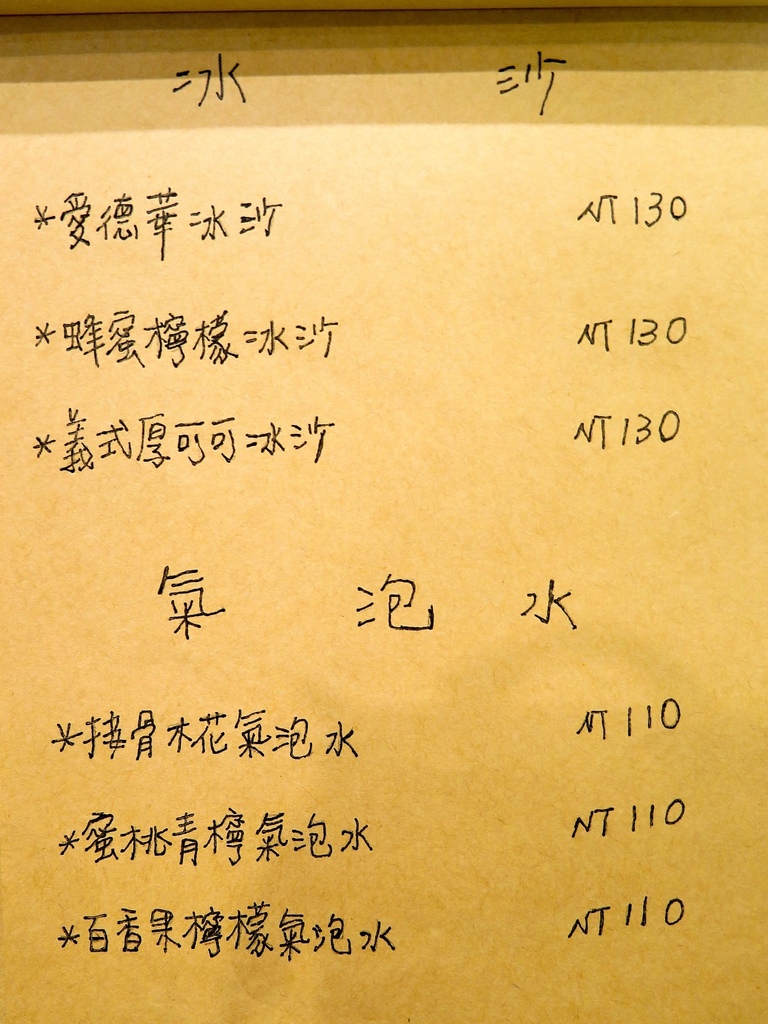 冰 沙
*愛德華冰沙 NT130
*蜂蜜檸檬冰沙 NT130
*義式厚可可冰沙 NT130
氣 泡 水
*接骨木花氣泡水 NT110
*蜜桃青檸氣泡水 NT110
*百香果檸檬氣泡水 NT110